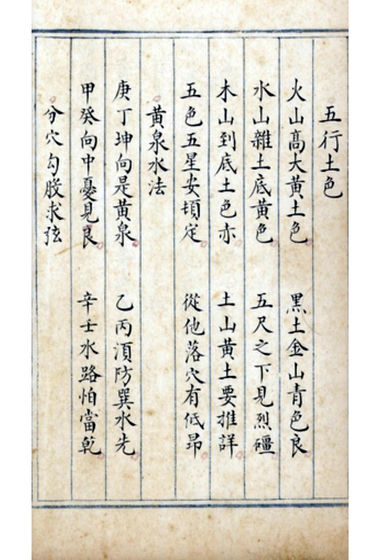 五行土色
火山高大黃土色　黑土金山青色良
水山雜土底黃色　五尺之下見烈礓
木山到底土色赤　土山黃土要推詳
五色五星安頓定　從他落穴有低昻
黃泉水法
庚丁坤向是黃泉　乙丙湏防巽水先
甲癸向中憂見艮　辛壬水路怕當乾
分穴勾股求弦